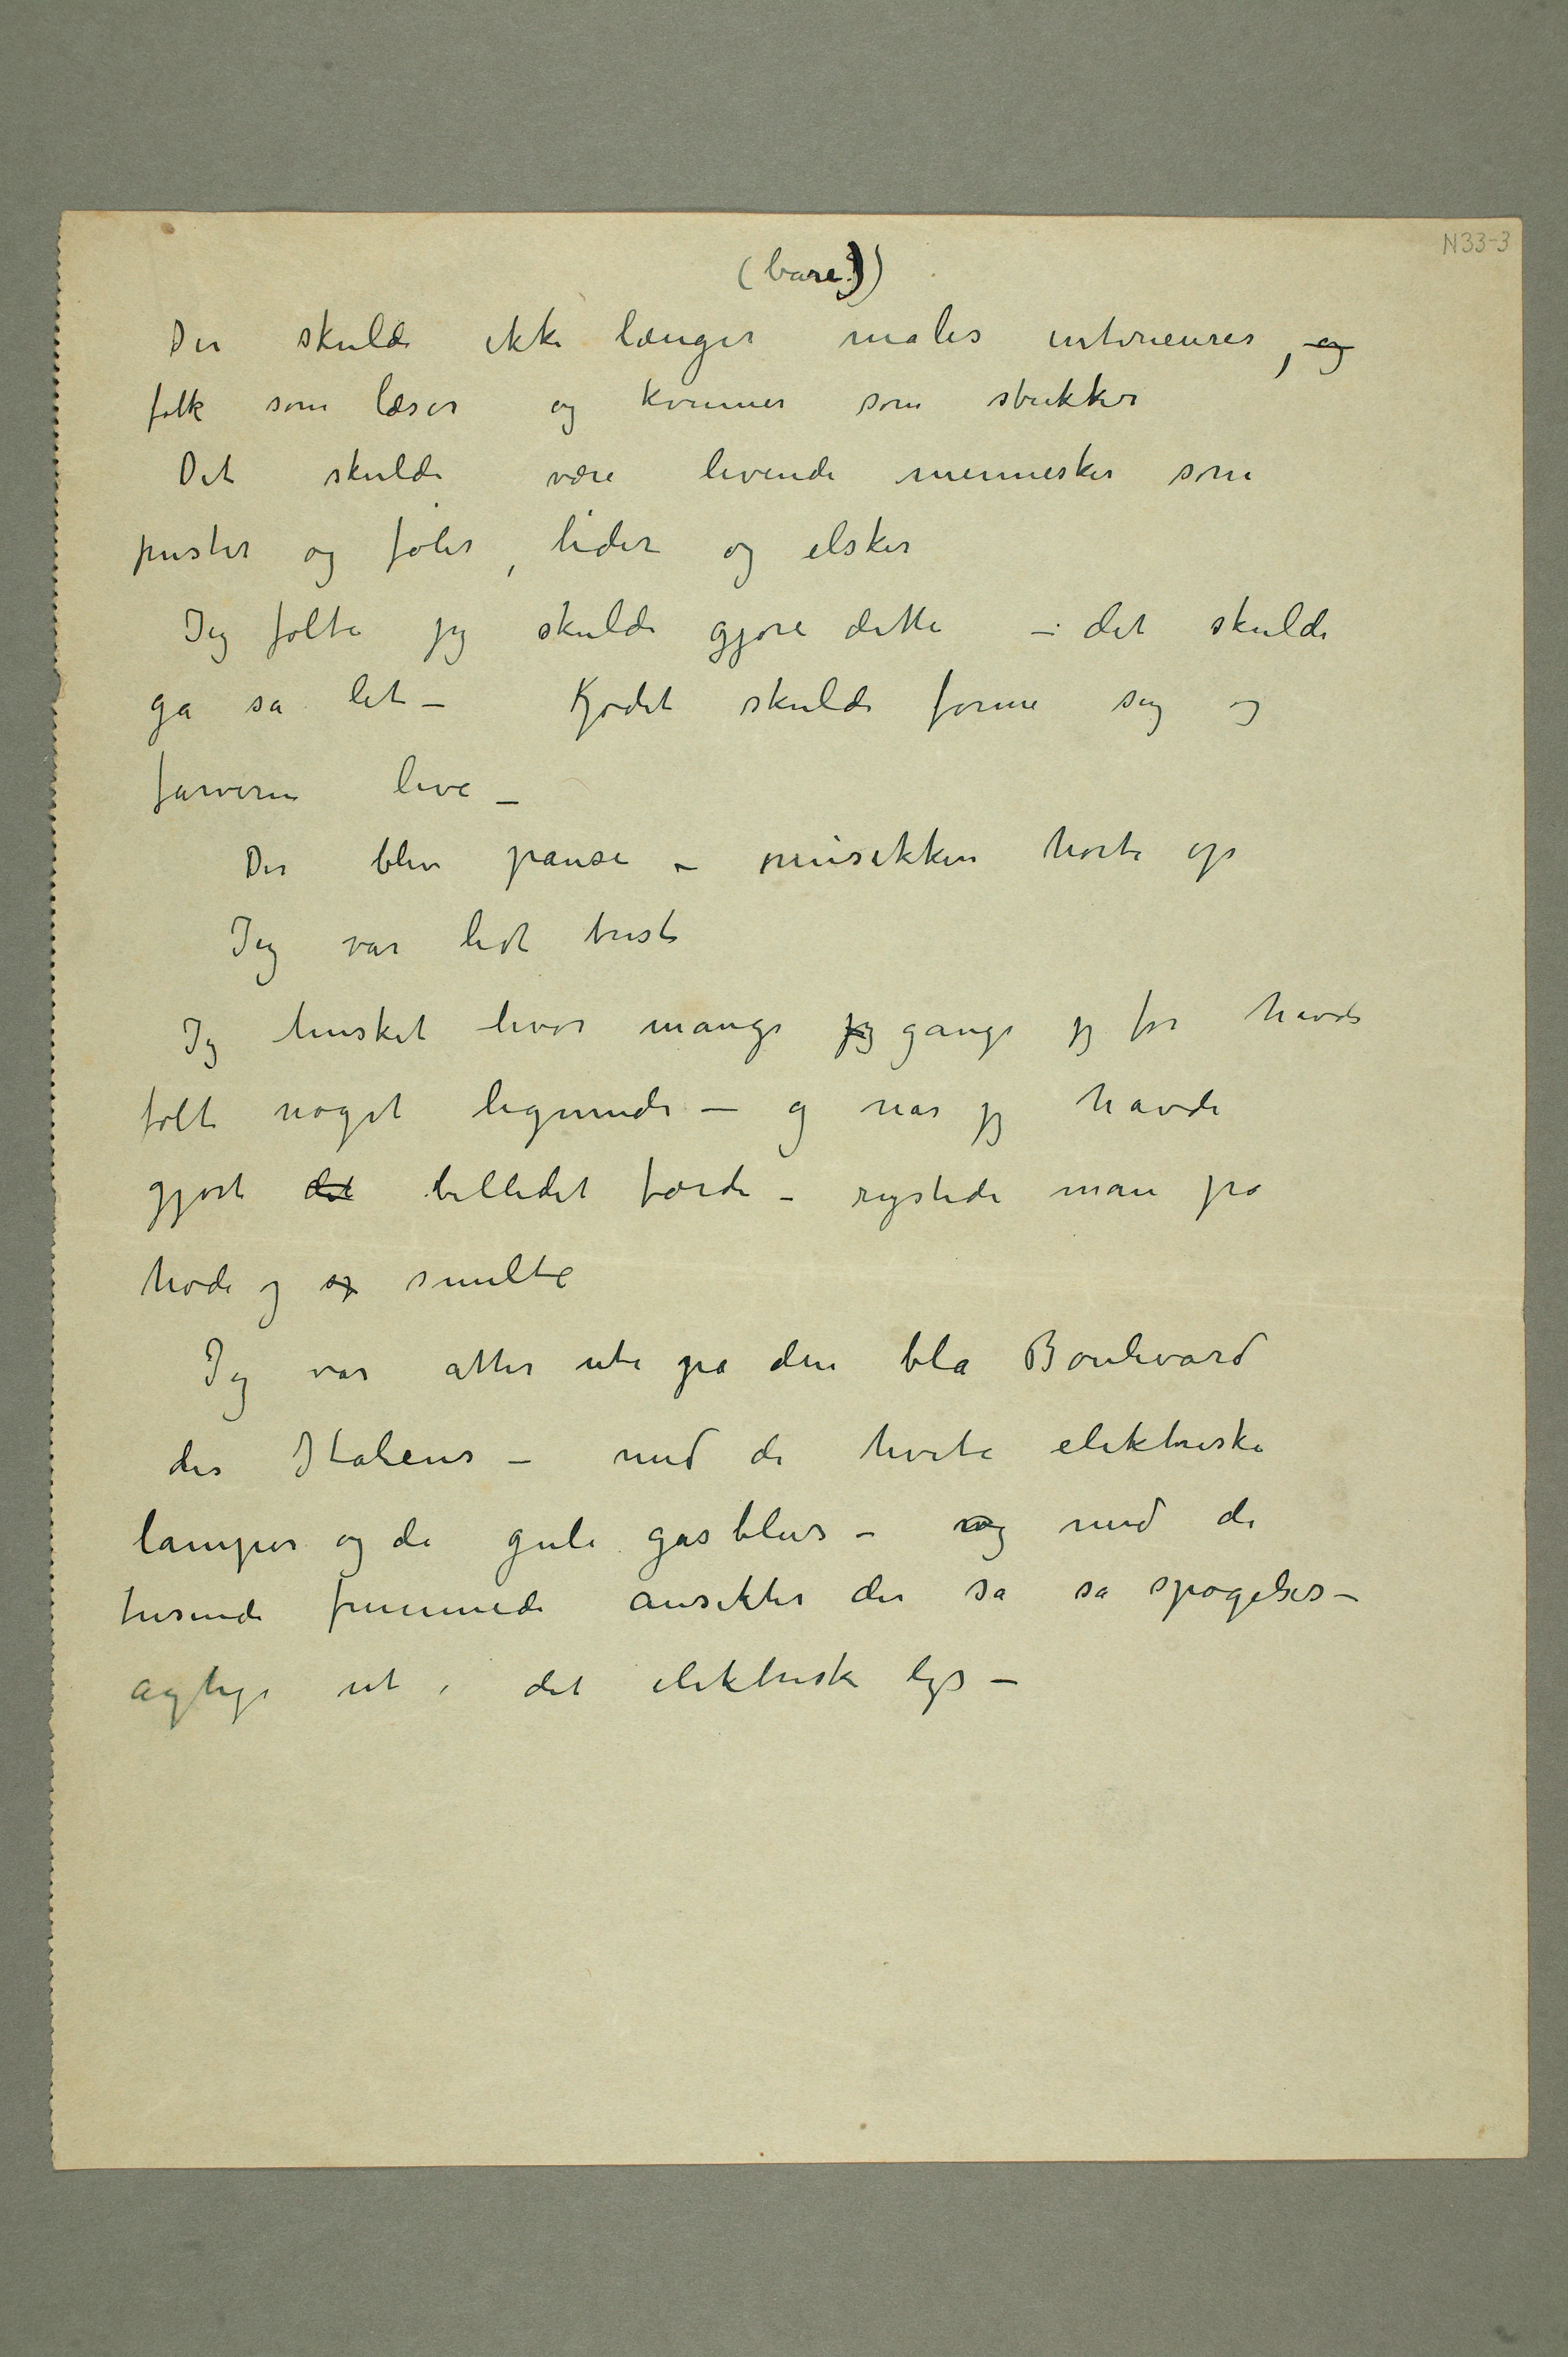 N33-3
(bare?)
Der skulde ikke længer males interieurer, og
folk som læser og kvinner som strikker
Det skulde være levende mennesker som
puster og føler, lider og elsker
Jeg følte jeg skulde gjøre dette – det skulde
gå så let – Kjødet skulde forme seg og
farverne leve –
Der blev pause – musikken hørte op
Jeg var lidt trist
Jeg husket hvor mange jeg gange jeg før havde
følt noget lignende – og når jeg havde
gjort det billedet færdi – rystede man på
hode og og smilte
Jeg var atter ute på den blå Boulevard
des Italiens – med de hvite elektriske
lamper og de gule gasblus – og med de
tusinde fremmede ansikter der så så spøgelses–
agtige ut i det elektriske lys –